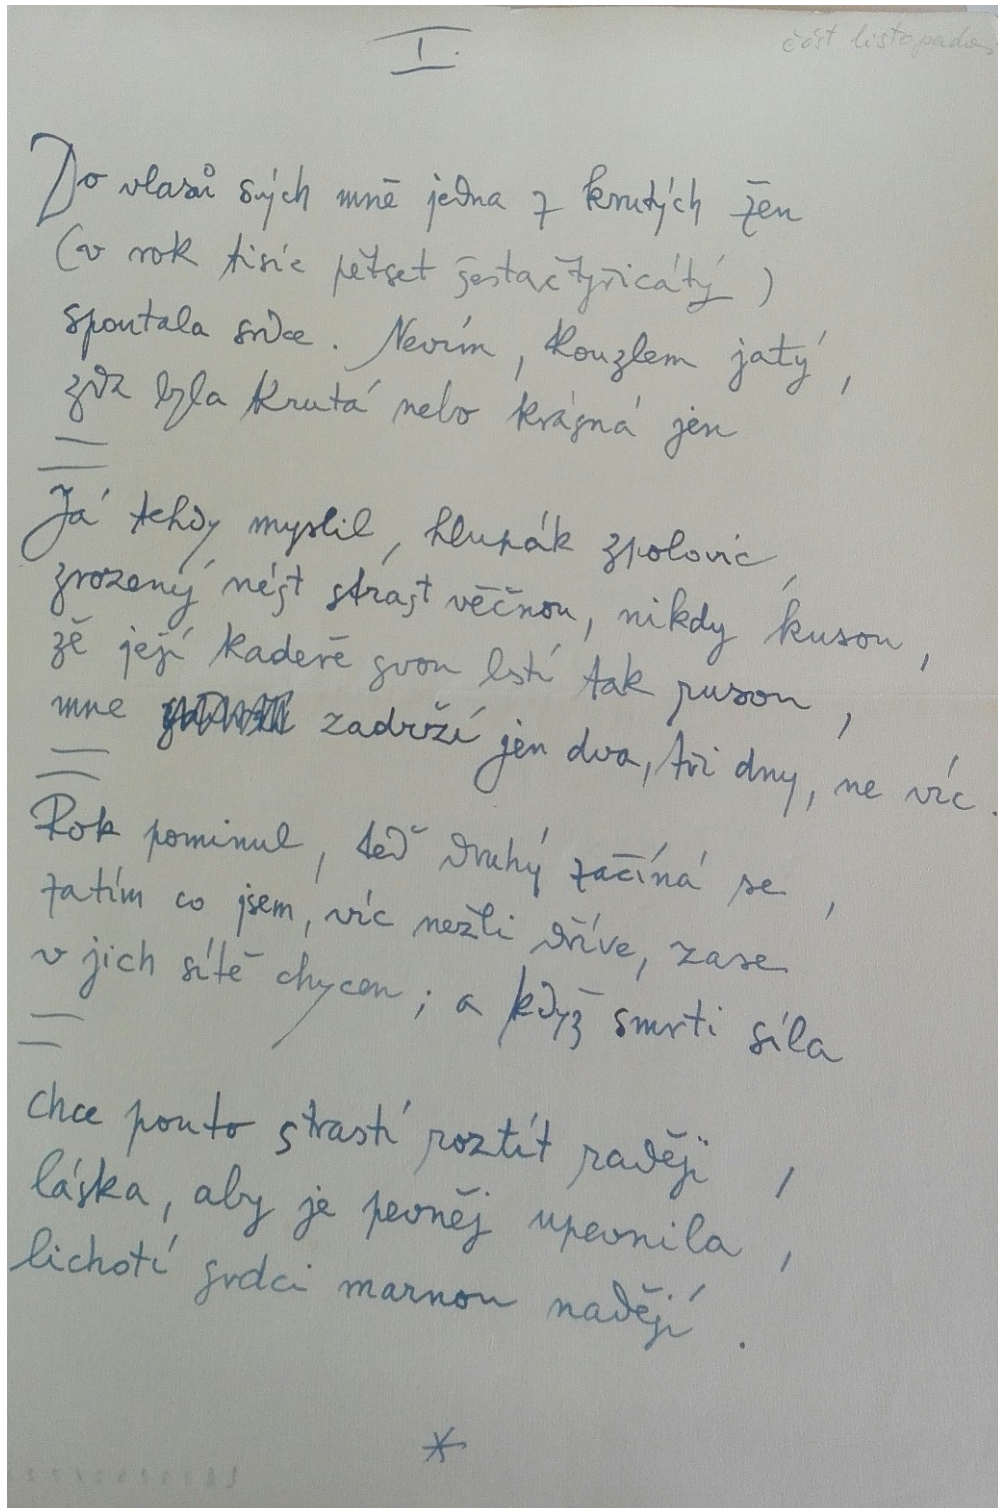 I.
část listopadu
Do vlasů svých mně jedna z krutých žen
(v rok tisíc pětset šestačtyřicátý)
spoutala srdce. Nevím, kouzlem jatý,
zda byla krutá nebo krásná jen
Já tehdy myslil, hlupák zpolovic,
zrozený nést strast věčnou, nikdy kusou,
že její kadeře svou lstí tak rusou,
mne zadrží jen dva, tři dny, ne víc.
Rok pominul, teď druhý začíná se,
zatím co jsem, víc nežli dříve, zase
v jich sítě chycen; a když smrti síla
chce pouto strastí roztít raději,
láska, aby je pevněj upevnila,
lichotí srdci marnou nadějí.
*